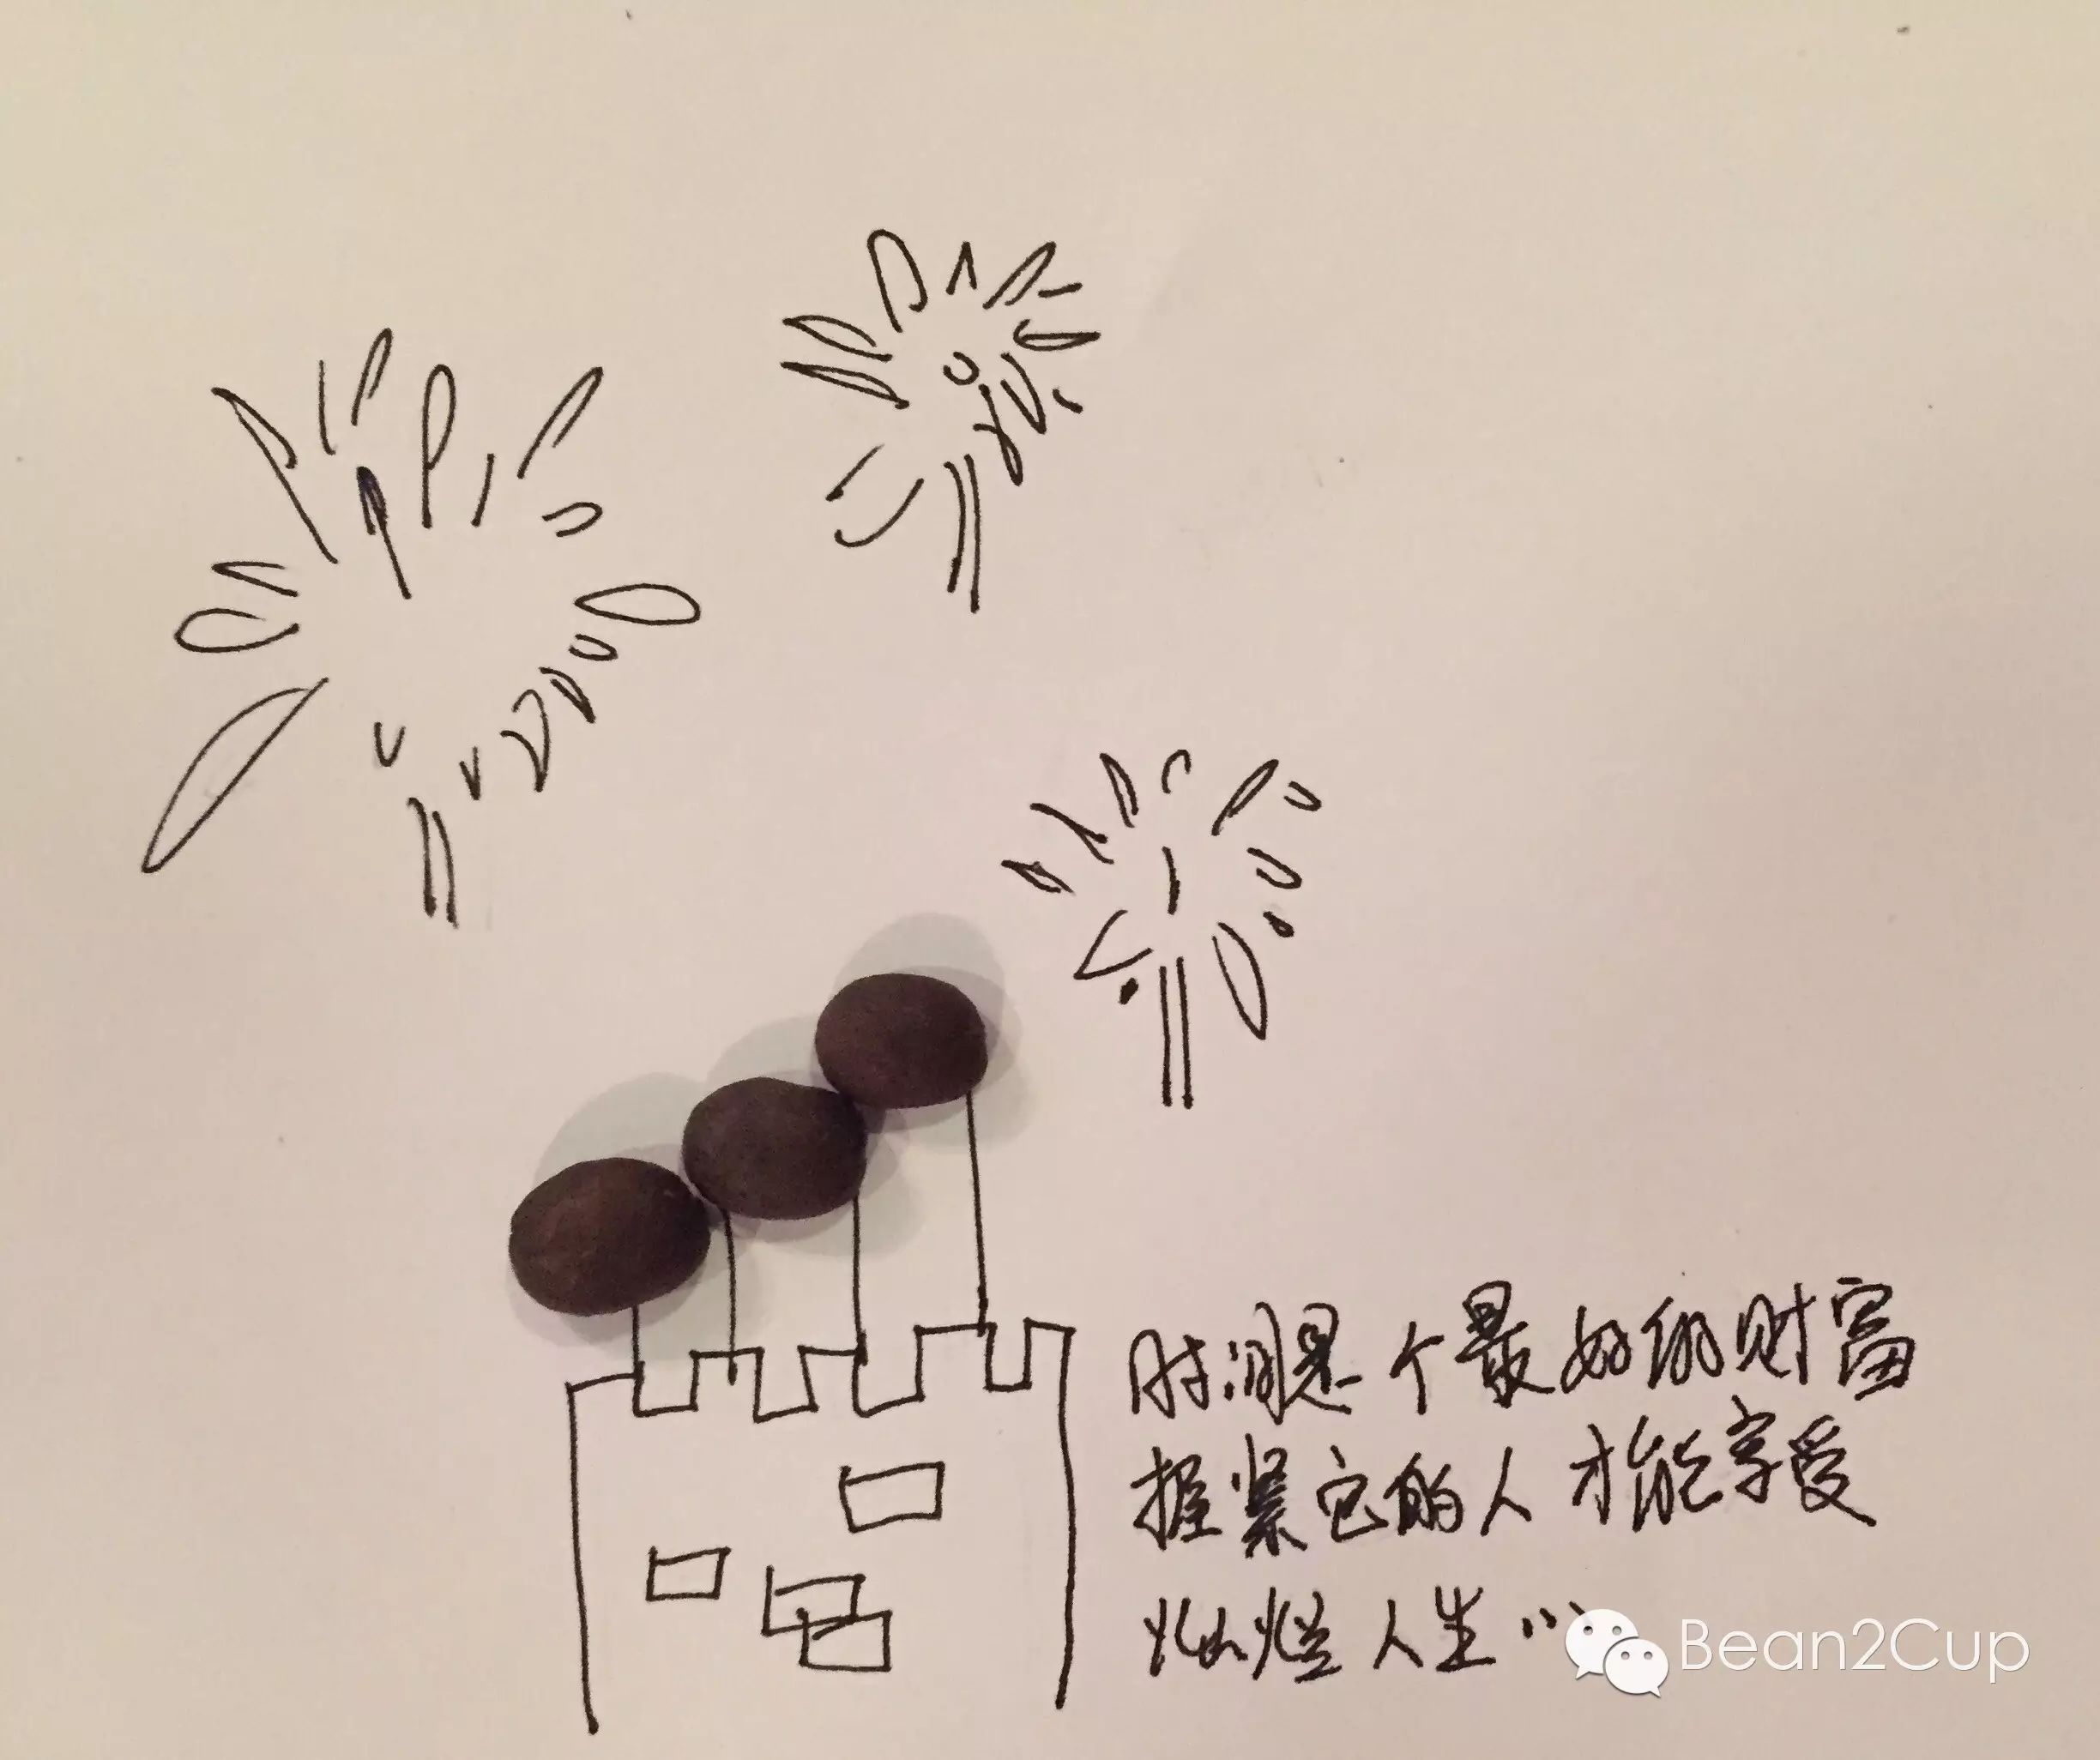 时间是个最好的财富
握紧它的人才能享受
灿烂人生……
Bean2Cup